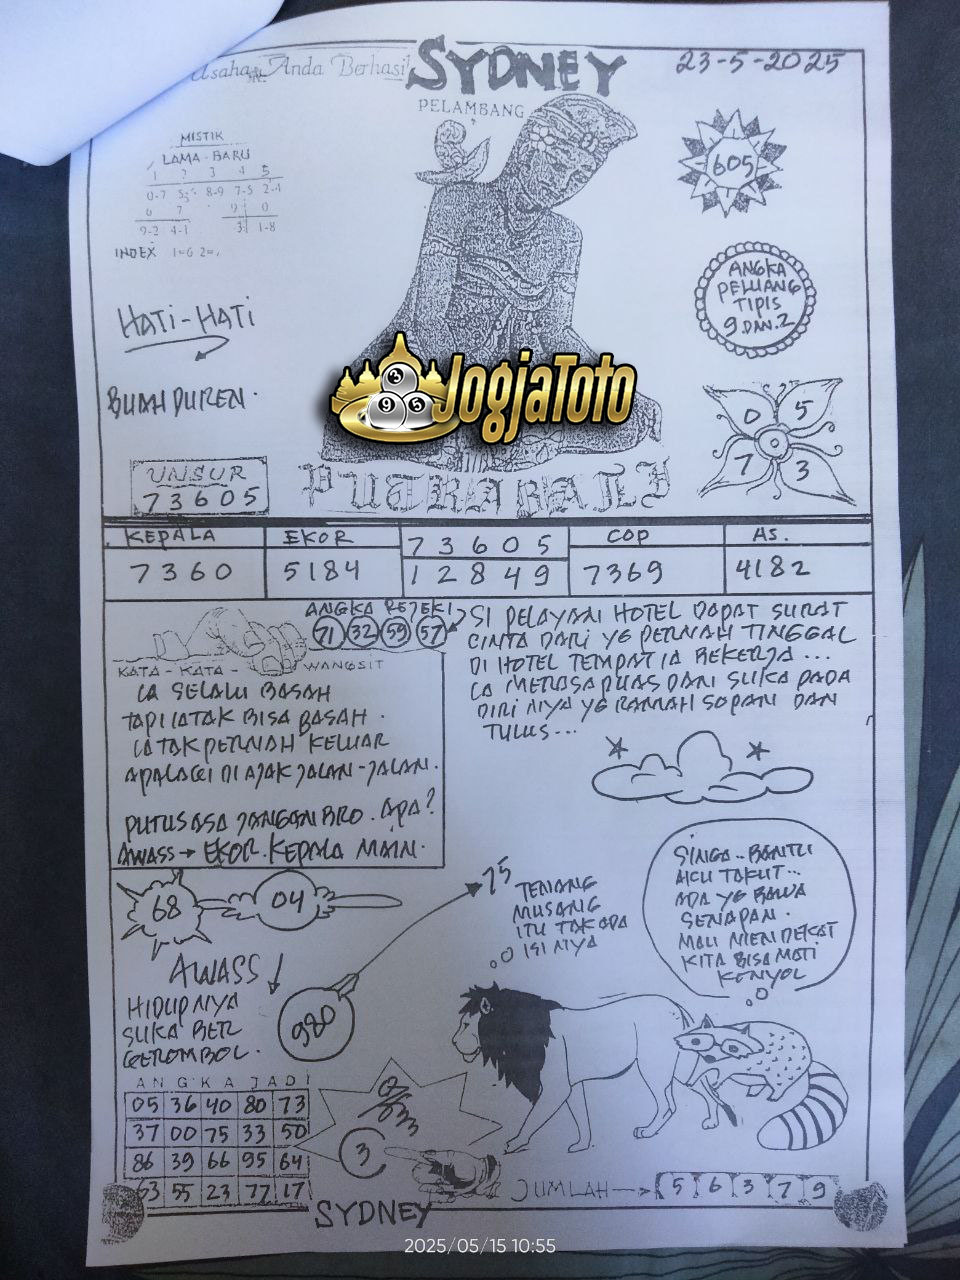 Usaha Anda Berhasil
SYDNEY
23-5-2025
PELAMBANG
MISTIK
LAMA - BARU
1 2 3 4 5
0-7 8-9 7-5 2-4
6 7 9 0
9-2 4-1 3 1-8
INDEX 1=6 2=7
605
ANGKA
PELUANG
TIPIS
9 DAN 2
HATI-HATI
BUAH DUREN.
JogjaToto
3
9 5
0 5
7 3
UNSUR
73605
PUTRA BALI
KEPALA EKOR 73605 COP AS.
7360 5184 12849 7369 4182
ANGKA REJEKI
71 32 59 57
KATA - KATA - WANGSIT
IA SELALU BASAH
TAPI IATAK BISA BASAH.
IA TAK PERNAH KELUAR
APALAGI DI AJAK JALAN-JALAN.
PUTUS ASA JANGAN BRO. APA?
AWASS → EKOR. KEPALA MAIN.
SI PELAYAN HOTEL DAPAT SURAT
CINTA DARI YG PERNAH TINGGAL
DI HOTEL TEMPAT IA BEKERJA...
IA MERASA PUAS DAN SUKA PADA
DIRI NYA YG RAMAH SOPAN DAN
TULUS...
68 04
75
TENANG
MUSANG
ITU TAK ADA
ISI NYA
SINGA.. BANTU
AKU TAKUT...
ADA YG BAWA
SENAPAN.
MAU MENDEKAT
KITA BISA MATI
KONYOL
AWASS
HIDUP NYA
SUKA BER
GEROMBOL.
980
ANGKA JADI
05 36 40 80 73
37 00 75 33 50
86 39 66 95 64
63 55 23 77 17
3
JUMLAH → 5 6 3 7 9
SYDNEY
2025/05/15 10:55